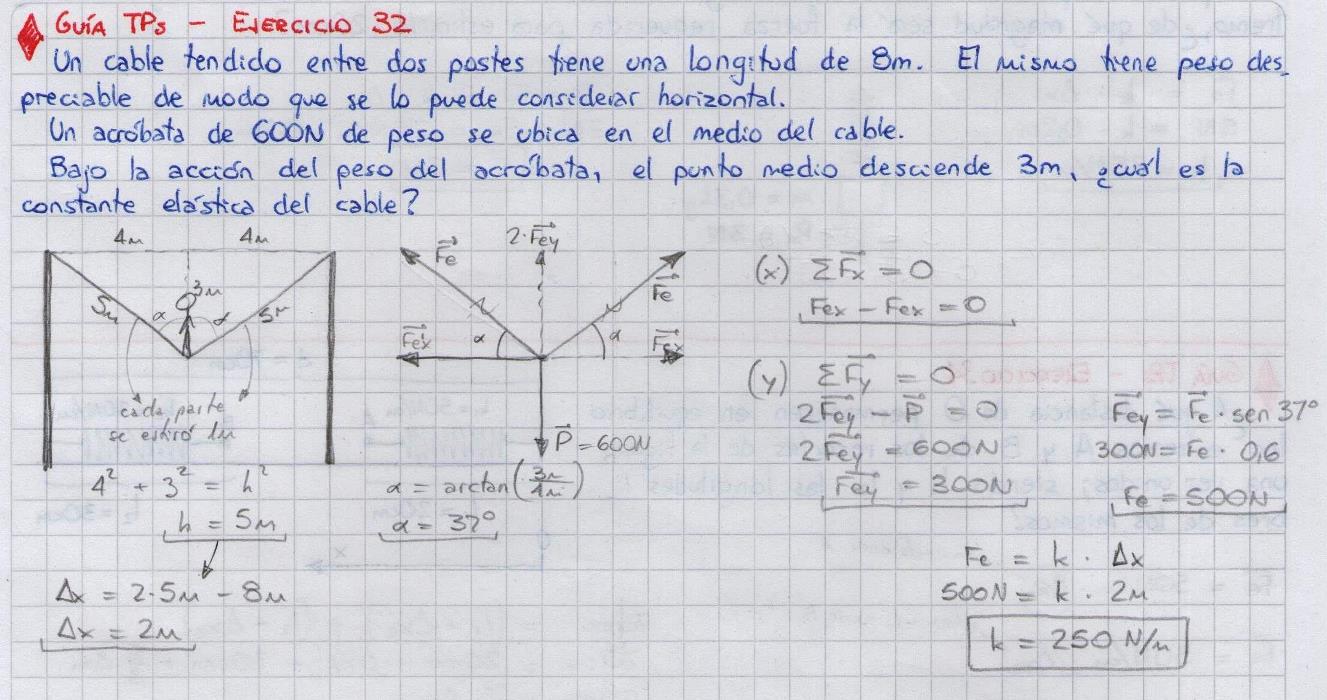 GUÍA TPs - EJERCICIO 32
Un cable tendido entre dos postes tiene una longitud de 8m. El mismo tiene peso des_
preciable de modo que se lo puede considerar horizontal.
Un acróbata de 600N de peso se ubica en el medio del cable.
Bajo la acción del peso del acróbata, el punto medio desciende 3m, ¿cuál es la
constante elástica del cable?
4m 4m
3m
5m α α 5m
cada parte
se estiró 1m
4² + 3² = h²
h = 5m
Δx = 2·5m - 8m
Δx = 2m
2·Fey
Fe Fe
Fex α α Fex
P = 600N
α = arctan(3m/4m)
α = 37°
(x) ΣFx = 0
Fex - Fex = 0
(y) ΣFy = 0
2Fey - P = 0
2Fey = 600N
Fey = 300N
Fey = Fe · sen 37°
300N = Fe · 0,6
Fe = 500N
Fe = k · Δx
500N = k · 2m
k = 250 N/m